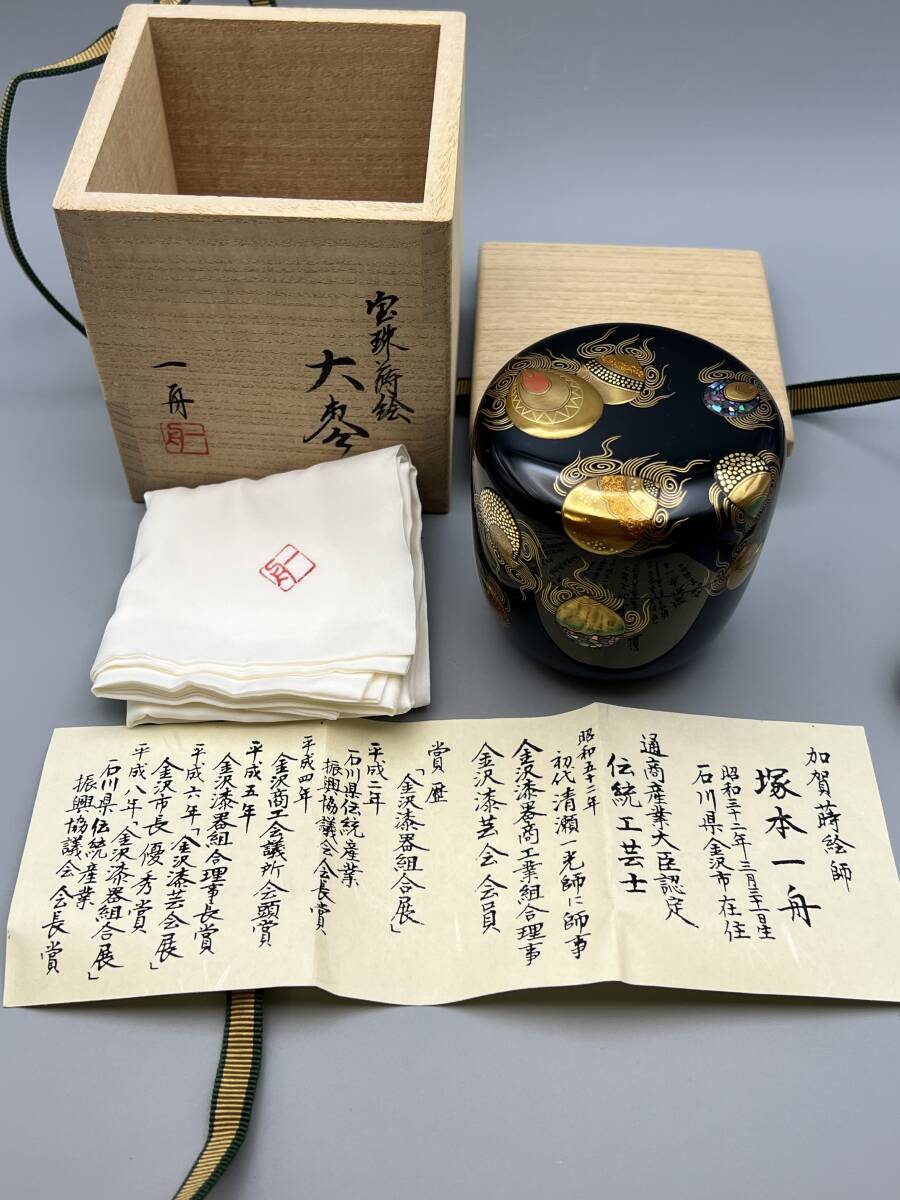 宝珠蒔絵
大棗
一舟
加賀蒔絵師
塚本一舟
昭和三十二年三月三十一日生
石川県金沢市在住
通商産業大臣認定
伝統工芸士
昭和五十二年
初代清瀬一光師に師事
金沢漆器商工業組合理事
金沢漆芸会会員
賞歴
「金沢漆器組合展」
平成二年
石川県伝統産業
振興協議会会長賞
平成四年
金沢商工会議所会頭賞
平成五年
金沢漆器組合理事長賞
平成六年「金沢漆芸会展」
金沢市長優秀賞
平成八年「金沢漆器組合展」
石川県伝統産業
振興協議会会長賞